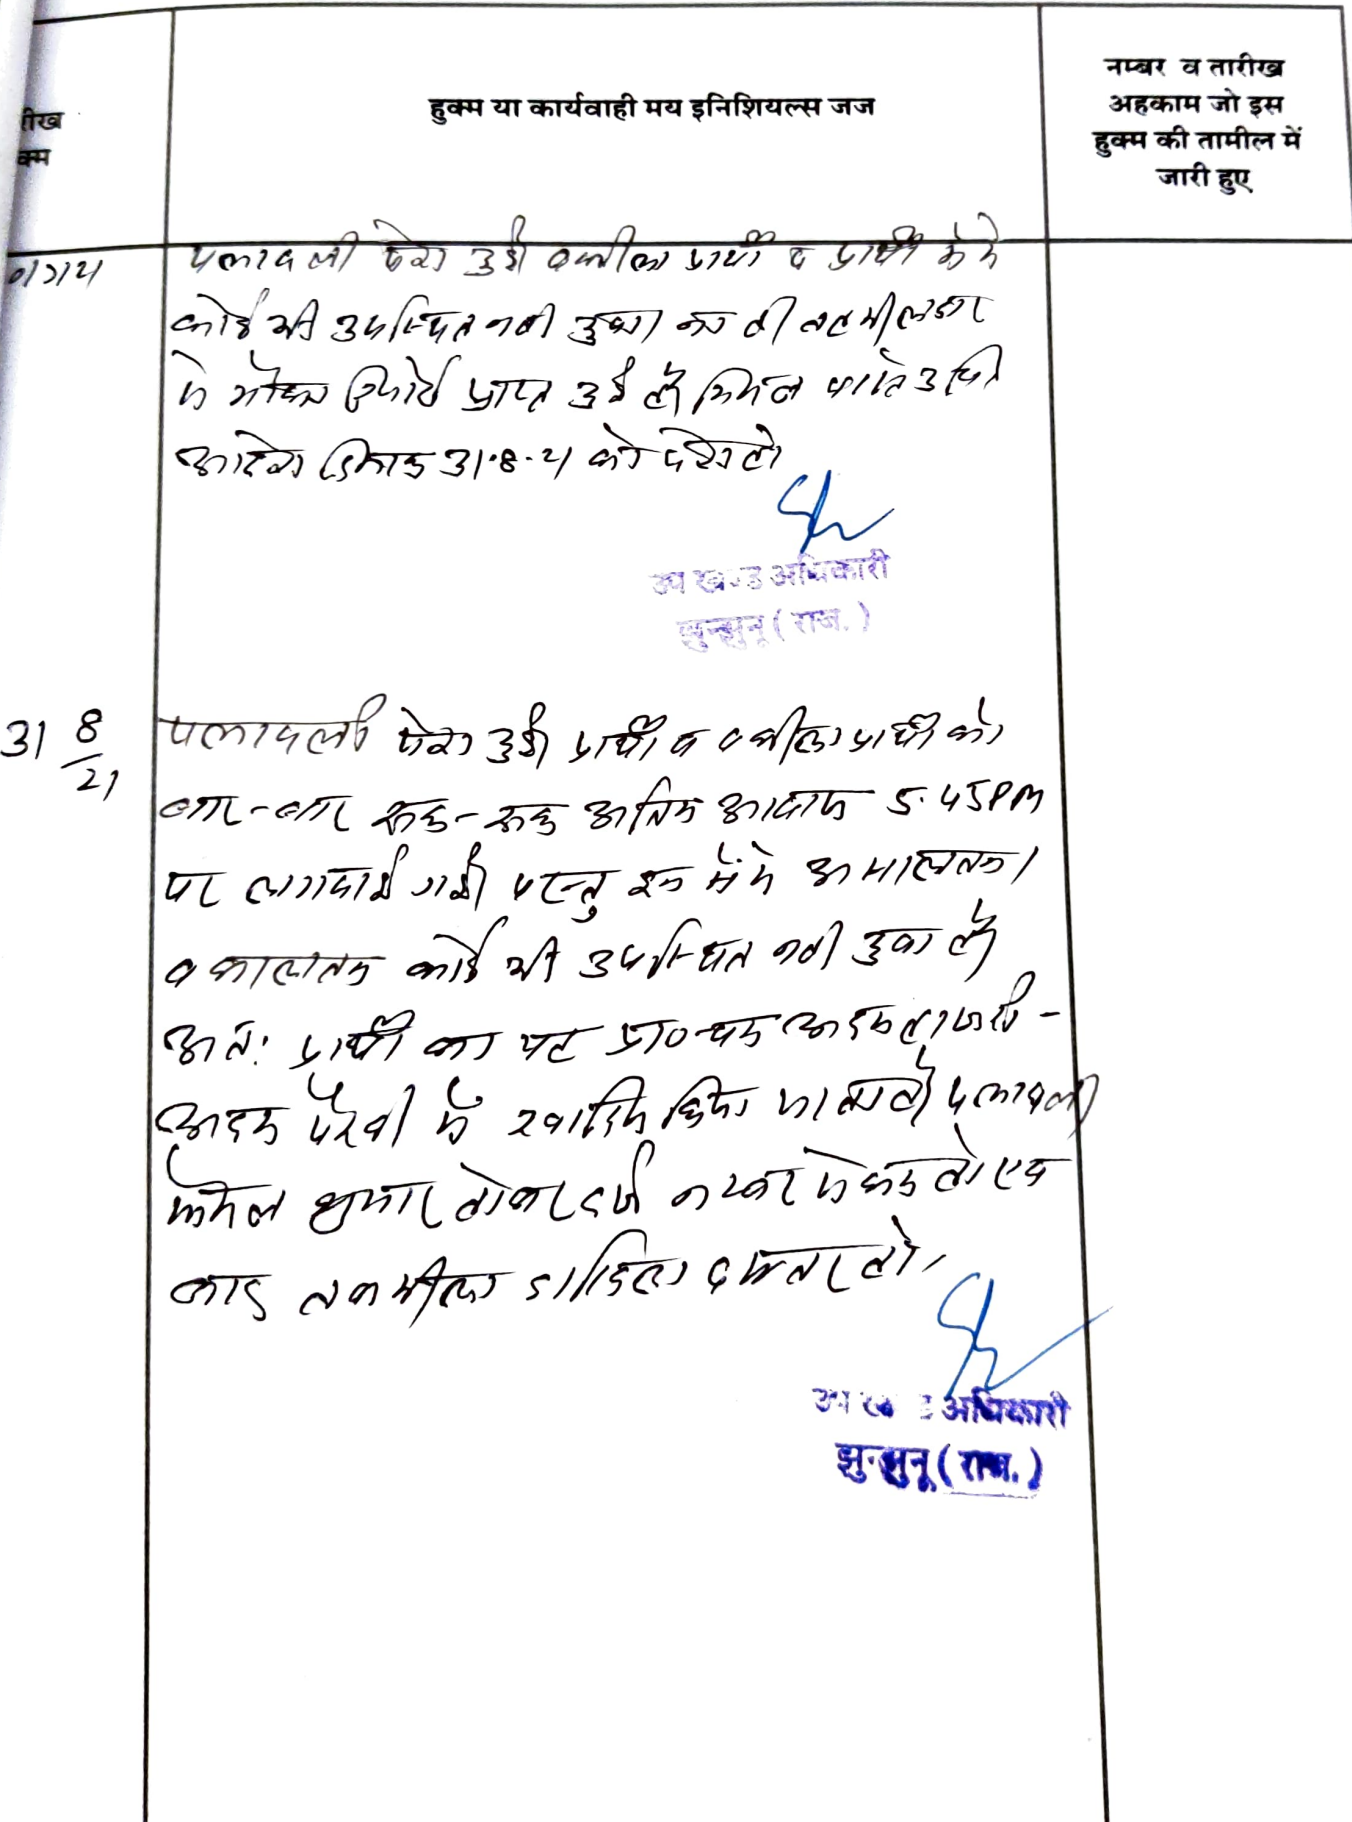 रीख
क्म
हुक्म या कार्यवाही मय इनिशियल्स जज
नम्बर व तारीख
अहकाम जो इस
हुक्म की तामील में
जारी हुए
पत्रावली पेश हुई वकील प्रार्थी व प्रार्थी में से
कोई भी उपस्थित नही हुआ तहसीलदार
से मौका रिपोर्ट प्राप्त हुई है मिसल वास्ते उचित
आदेश दिनांक 31.8.21 को पेश हो
उप खण्ड अधिकारी
झुन्झुनू (राज.)
31 8/21
पत्रावली पेश हुई प्रार्थी व वकील प्रार्थी को
बार-बार रूक-रूक अन्तिम आवाज 5.45PM
पर लगवाई गई परन्तु इन में से असालतन
वकालतन कोई भी उपस्थित नही हुवा है
अतः प्रार्थी का यह प्रा० पत्र अदम हाजरी-
अदम पैरवी में खारिज किया जाता है पत्रावली
फैसल शुमार होकर दर्ज नम्बर से कम हो एवं
बाद तकमील दाखिल दफ्तर हो।
उप खण्ड अधिकारी
झुन्झुनू (राज.)